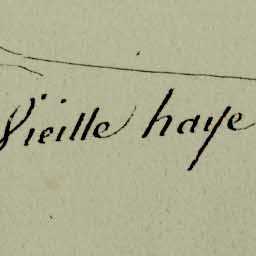 Vieille haye